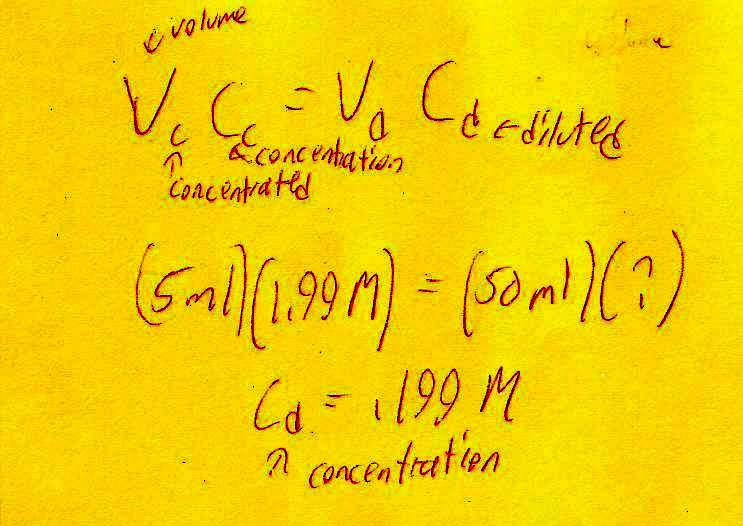 volume
V_c C_c = V_d C_d ← diluted
concentration
concentrated
(5ml)(1.99 M) = (50ml)(?)
C_d = .199 M
concentration